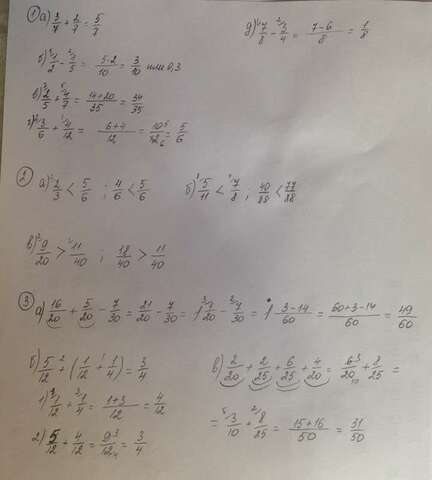 ① а) 3/7 + 2/7 = 5/7
б) 1/2 - 1/5 = 5·2/10 = 3/10 или 0,3
в) 2/5 + 4/7 = 14+20/35 = 34/35
г) 3/6 + 4/12 = 6+4/12 = 10/12 = 5/6
д) 7/8 - 3/4 = 7-6/8 = 1/8
② а) 2/3 < 5/6 ; 4/6 < 5/6
б) 5/11 < 7/8 ; 40/88 < 77/88
в) 9/20 > 11/40 ; 18/40 > 11/40
③ а) 16/20 + 5/20 - 7/30 = 21/20 - 7/30 = 1 1/20 - 7/30 = 1 3-14/60 = 60+3-14/60 = 49/60
б) 5/12 + (1/12 + 1/4) = 3/4
1) 1/12 + 1/4 = 1+3/12 = 4/12
2) 5/12 + 4/12 = 9/12 = 3/4
в) 2/20 + 2/25 + 6/25 + 4/20 = 6/20 + 8/25 =
= 3/10 + 8/25 = 15+16/50 = 31/50